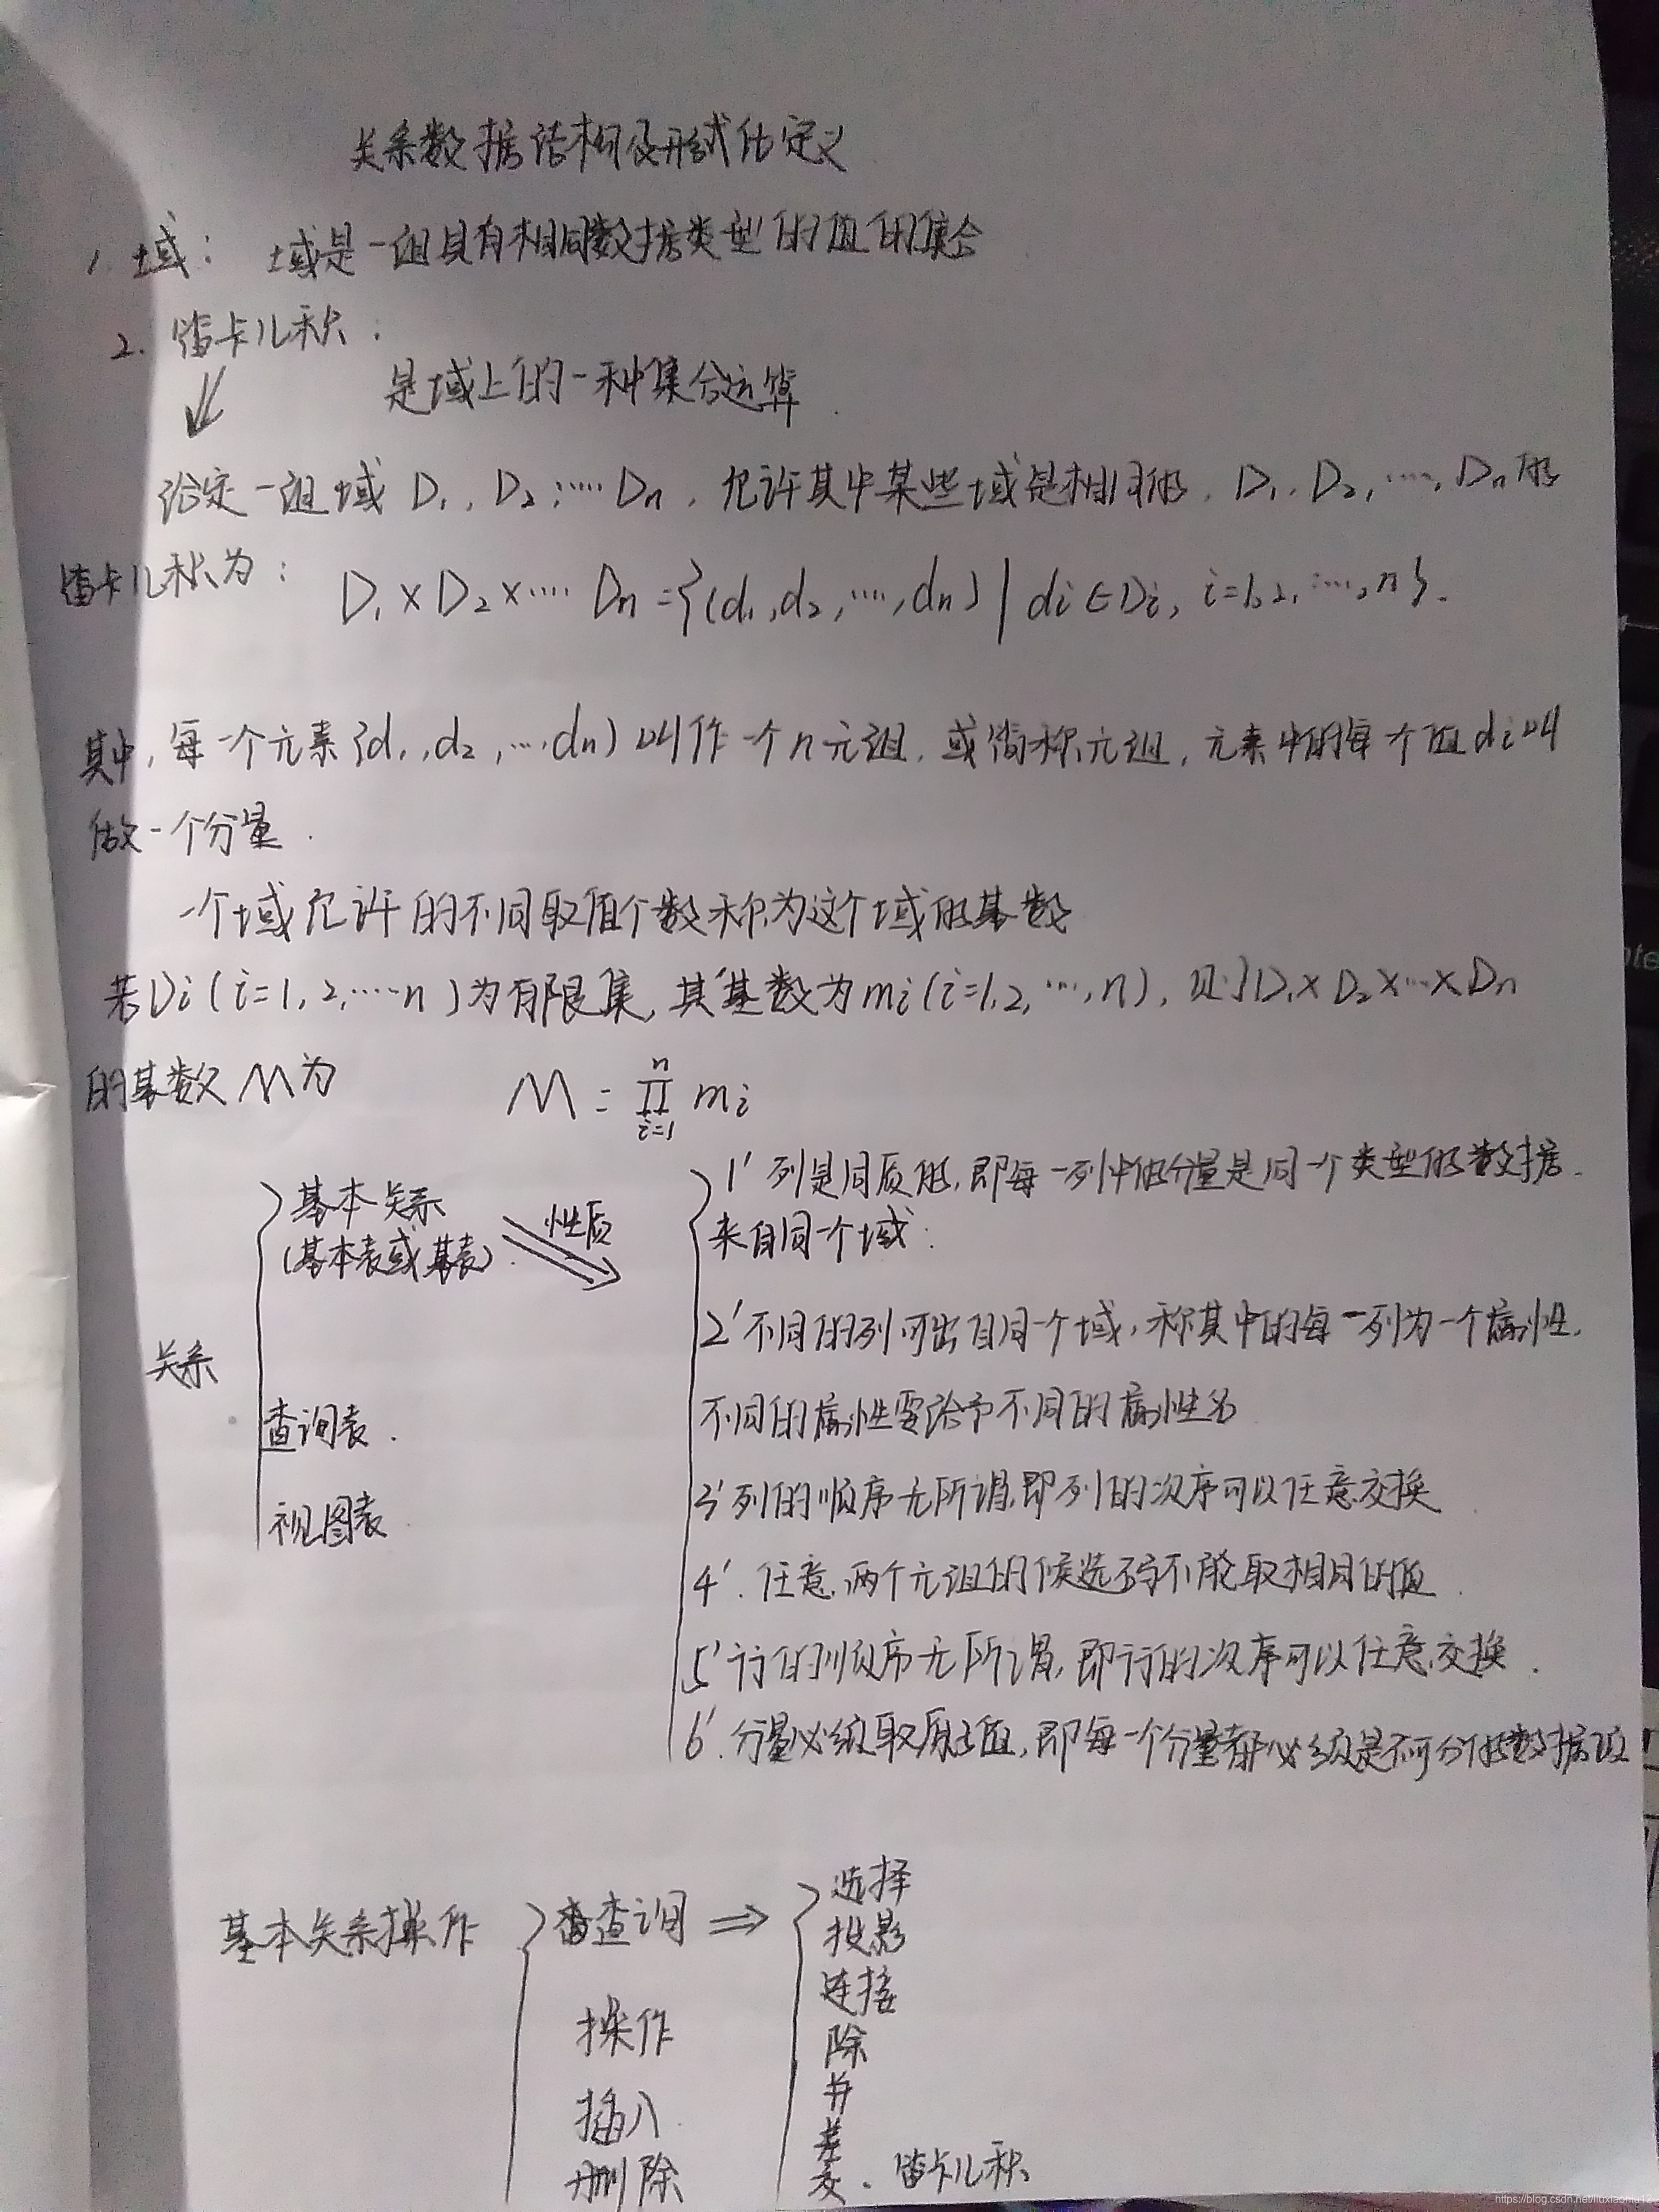 关系数据结构及形式化定义
1. 域： 域是一组具有相同数据类型的值的集合
2. 笛卡儿积：
是域上的一种集合运算.
给定一组域 D1, D2, ..... Dn, 允许其中某些域是相同的. D1, D2, ...., Dn的
笛卡儿积为： D1×D2×···· Dn={(d1,d2,…,dn) | di∈Di, i=1,2,…,n}.
其中,每一个元素(d1,d2,…,dn)叫作一个n元组,或简称元组,元素中的每个值di叫
做一个分量.
一个域允许的不同取值个数称为这个域的基数
若Di(i=1,2,…n)为有限集,其基数为mi(i=1,2,…,n),则D1×D2×…×Dn
的基数M为 M = n∏i=1 mi
关系
基本关系
(基本表或基表).
性质
查询表.
视图表
1' 列是同质的,即每一列中的分量是同一个类型的数据.
来自同一个域:
2' 不同的列可出自同一个域,称其中的每一列为一个属性,
不同的属性要给予不同的属性名
3' 列的顺序无所谓,即列的次序可以任意交换
4'. 任意两个元组的候选码不能取相同的值.
5' 行的顺序无所谓,即行的次序可以任意交换.
6'. 分量必须取原子值,即每一个分量都必须是不可分的数据项
基本关系操作
查询
操作
插入
删除
选择
投影
连接
除
并
差
交、笛卡儿积
https://blog.csdn.net/liuxiaoniu12